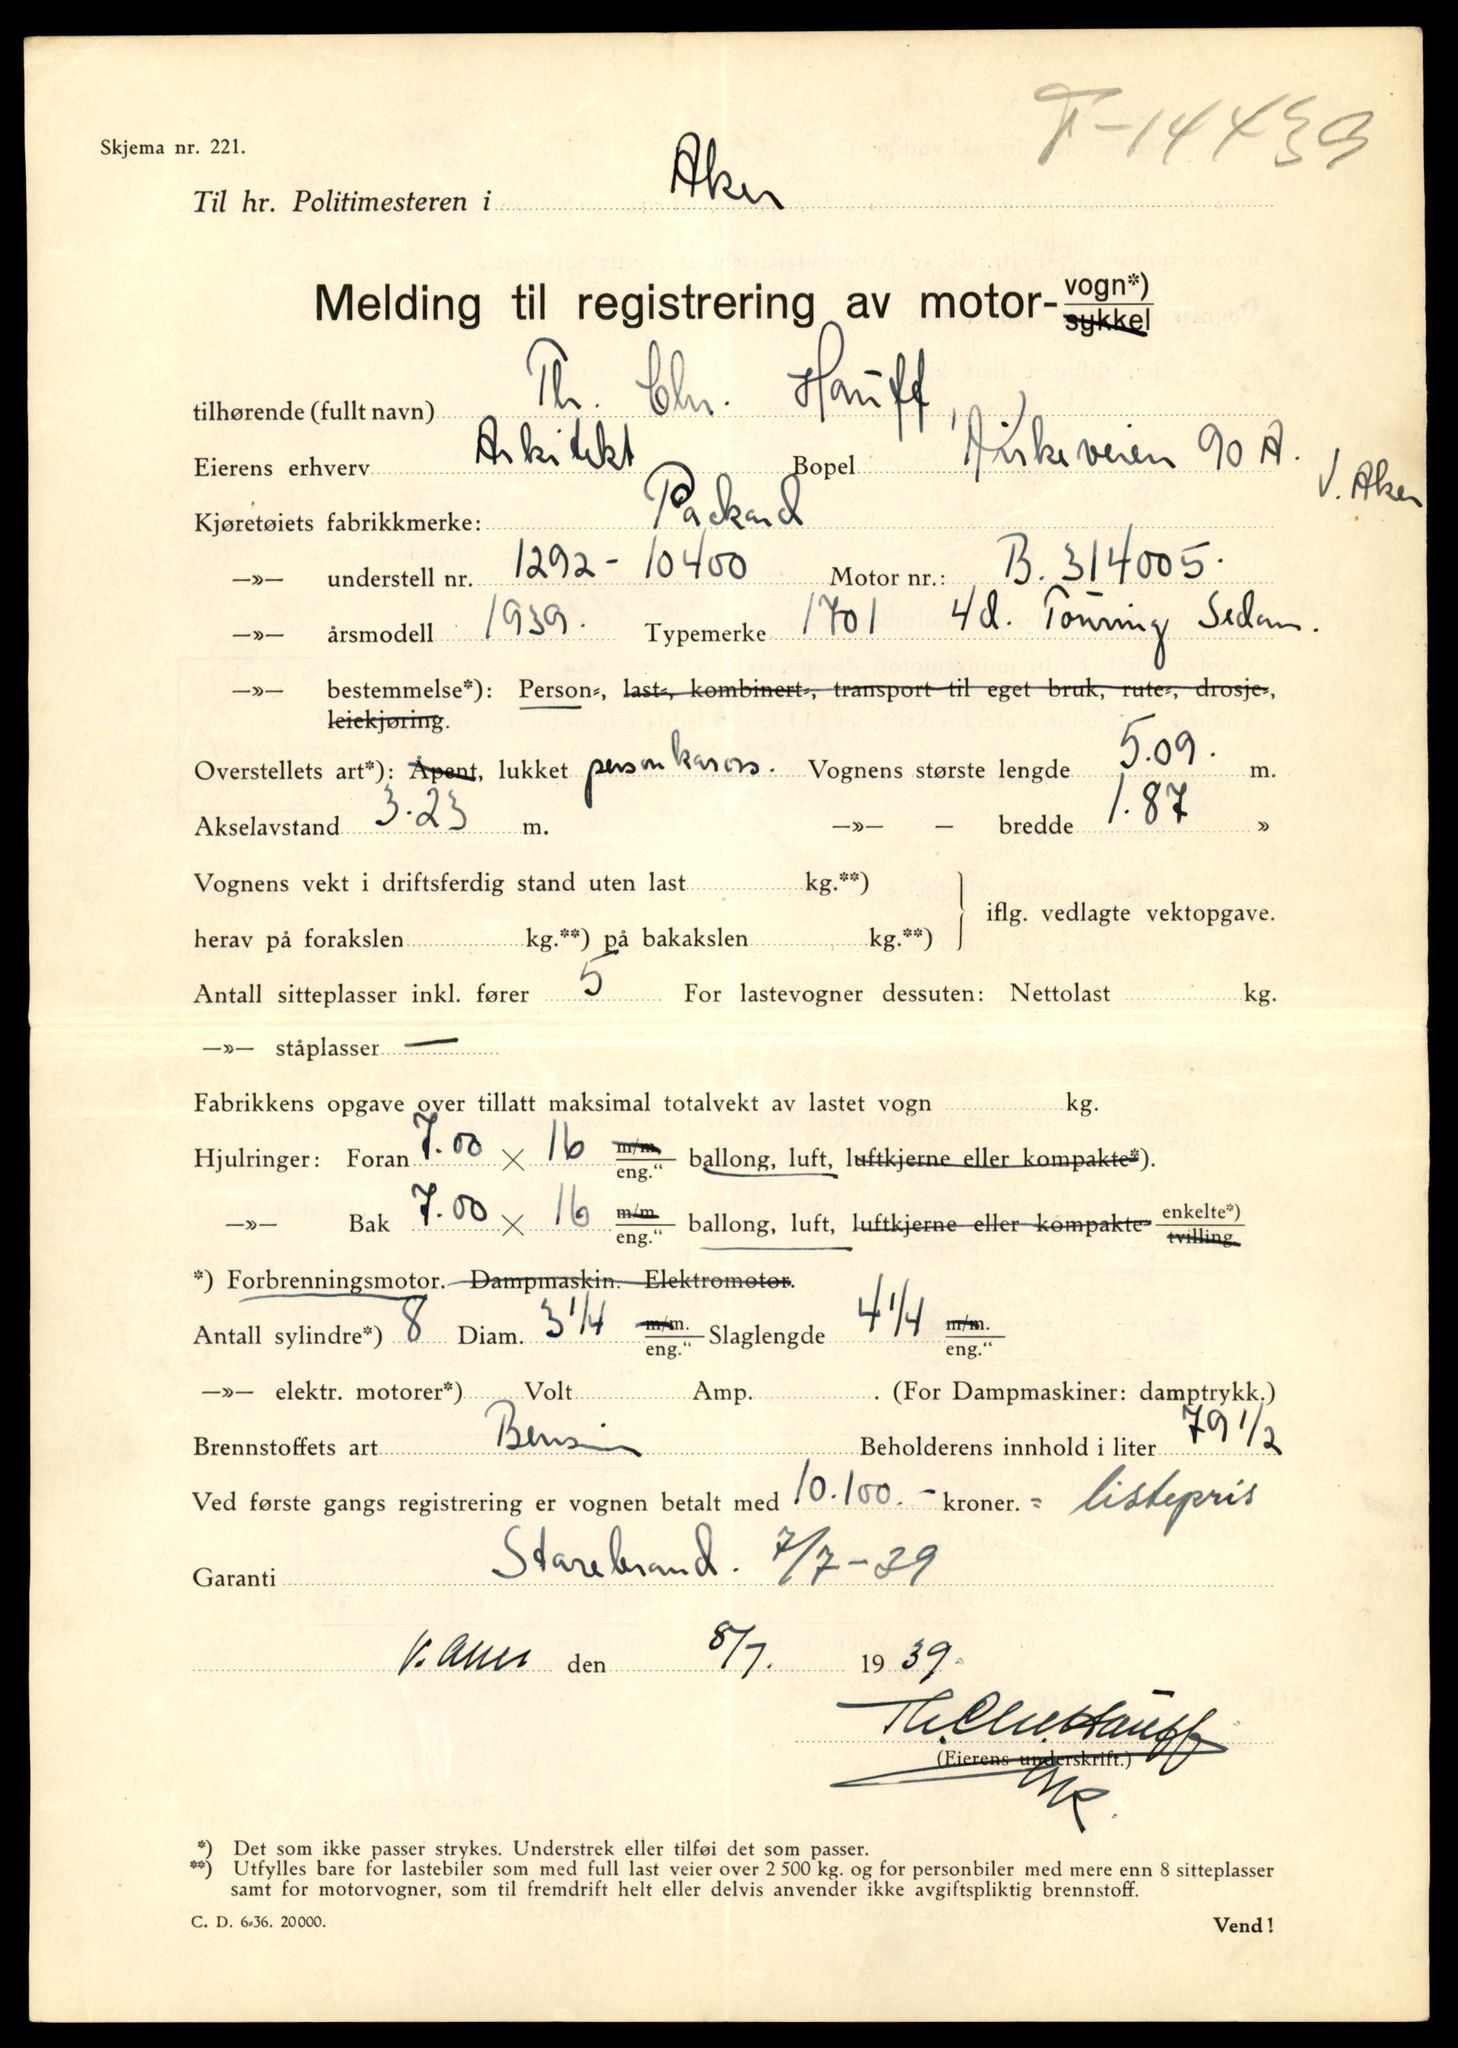 F-14439
Skjema nr. 221.
Til hr. Politimesteren i Aker
Melding til registrering av motor- vogn*)
sykkel
tilhørende (fullt navn) Th. Chr. Hauff,
Eierens erhverv Arkitekt Bopel Kirkeveien 90 A.
V. Aker
Kjøretøiets fabrikkmerke: Packard
—»— understell nr. 1292 - 10400 Motor nr.: B. 314005.
—»— årsmodell 1939. Typemerke 1701 4d. Touring Sedan.
—»— bestemmelse*): Person-, last-, kombinert-, transport til eget bruk, rute-, drosje-,
leiekjøring.
Overstellets art*): Åpent, lukket personkaross. Vognens største lengde 5.09. m.
Akselavstand 3.23 m. —»— — bredde 1.87 »
Vognens vekt i driftsferdig stand uten last kg.**)
iflg. vedlagte vektopgave.
herav på forakslen kg.**) på bakakslen kg.**)
Antall sitteplasser inkl. fører 5 For lastevogner dessuten: Nettolast kg.
—»— ståplasser —
Fabrikkens opgave over tillatt maksimal totalvekt av lastet vogn kg.
Hjulringer: Foran 7.00 × 16 m/m. eng.“ ballong, luft, luftkjerne eller kompakte*).
—»— Bak 7.00 × 16 m/m. eng.“ ballong, luft, luftkjerne eller kompakte- enkelte*) tvilling.
*) Forbrenningsmotor. Dampmaskin. Elektromotor.
Antall sylindre*) 8 Diam. 3 1/4 m/m. eng.“ Slaglengde 4 1/4 m/m. eng.“
—»— elektr. motorer*) Volt Amp. . (For Dampmaskiner: damptrykk.)
Brennstoffets art Bensin Beholderens innhold i liter 79 1/2
Ved første gangs registrering er vognen betalt med 10.100.- kroner. = listepris
Garanti Storebrand. 7/7-39
V. Aker den 8/7. 1939.
Th. Chr. Hauff
(Eierens underskrift.)
*) Det som ikke passer strykes. Understrek eller tilføi det som passer.
**) Utfylles bare for lastebiler som med full last veier over 2 500 kg. og for personbiler med mere enn 8 sitteplasser
samt for motorvogner, som til fremdrift helt eller delvis anvender ikke avgiftspliktig brennstoff.
C. D. 6-36. 20000.
Vend!